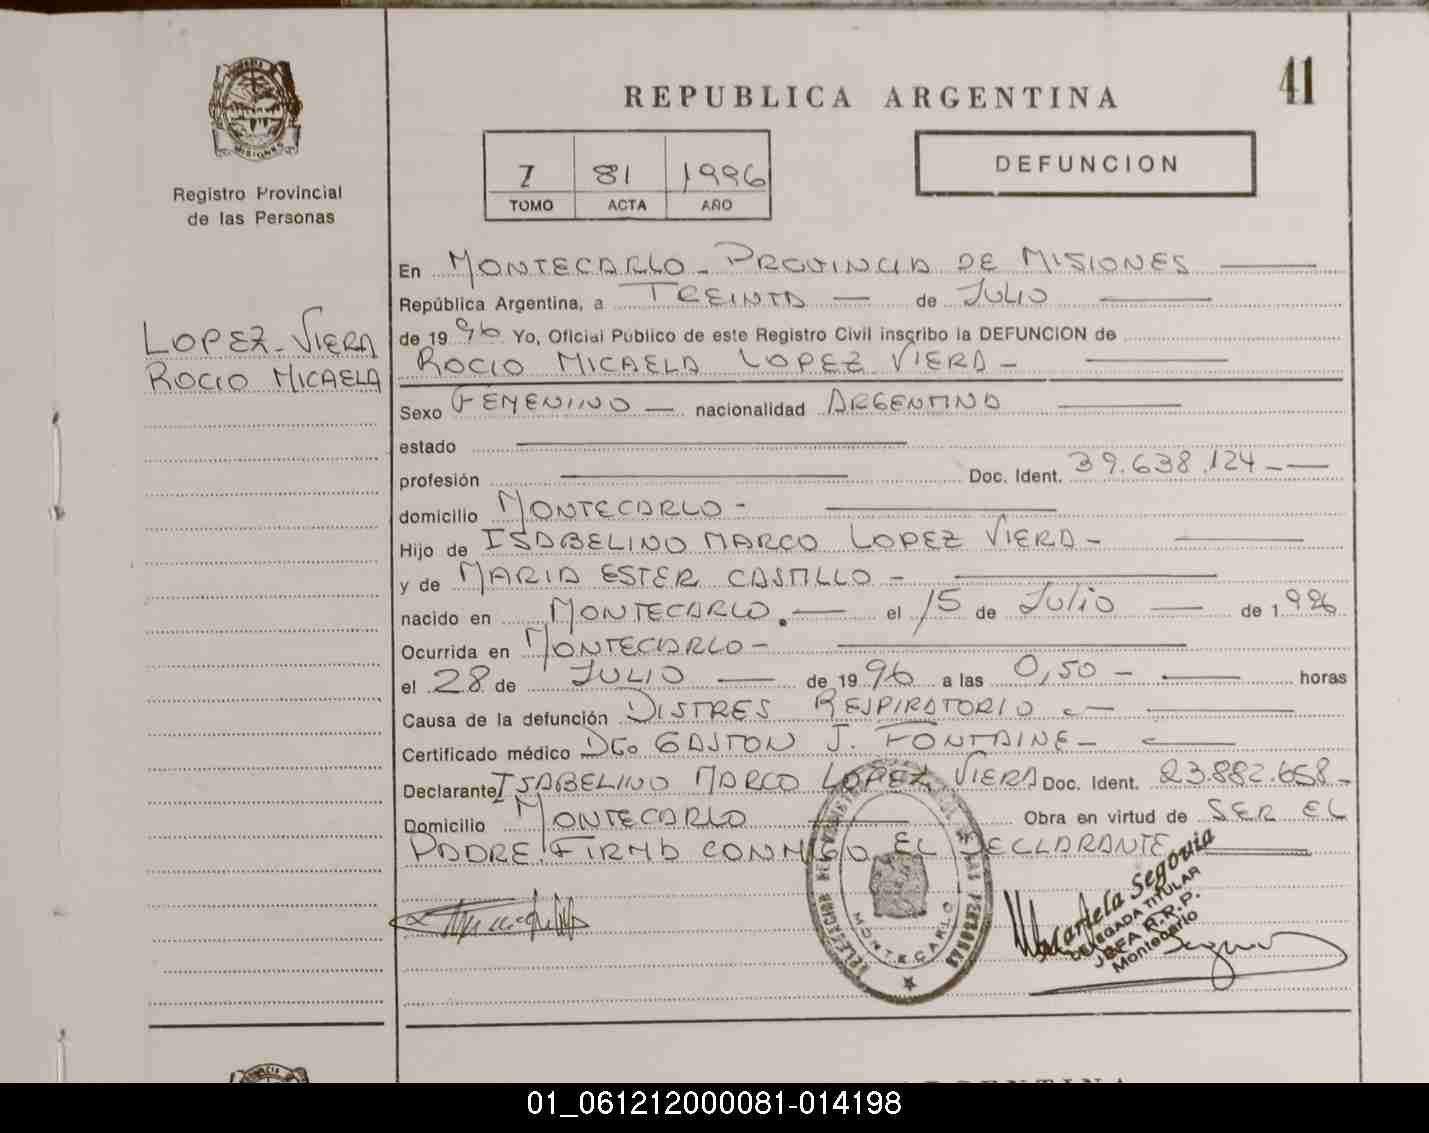 41
REPUBLICA ARGENTINA
DEFUNCION
MISIONES
Registro Provincial
de las Personas
I 81 1996
TOMO ACTA AÑO
LOPEZ-VIERA
ROCIO MICAELA
En MONTECARLO - PROVINCIA DE MISIONES
República Argentina, a TREINTA — de JULIO
de 1996 Yo, Oficial Público de este Registro Civil inscribo la DEFUNCION de
ROCIO MICAELA LOPEZ VIERA -
Sexo FEMENINO — nacionalidad ARGENTINA
estado
profesión Doc. Ident. 39.638.124 -
domicilio MONTECARLO -
Hijo de ISABELINO MARCO LOPEZ VIERA -
y de MARIA ESTER CASTILLO -
nacido en MONTECARLO. — el 15 de JULIO — de 1.996
Ocurrida en MONTECARLO -
el 28 de JULIO — de 1996 a las 0,50 - horas
Causa de la defunción DISTRES RESPIRATORIO
Certificado médico DGO GASTON J. FONTAINE -
Declarante ISABELINO MARCO LOPEZ VIERA Doc. Ident. 23.882.658 -
Domicilio MONTECARLO Obra en virtud de SER EL
PADRE. FIRMA CONMIGO EL DECLARANTE
DELEGACION DEL REGISTRO DE LAS PERSONAS
MONTECARLO
Macardela Segovia
DELEGADA TITULAR
R.P.P.
Montecarlo
ARGENTINA
01_061212000081-014198